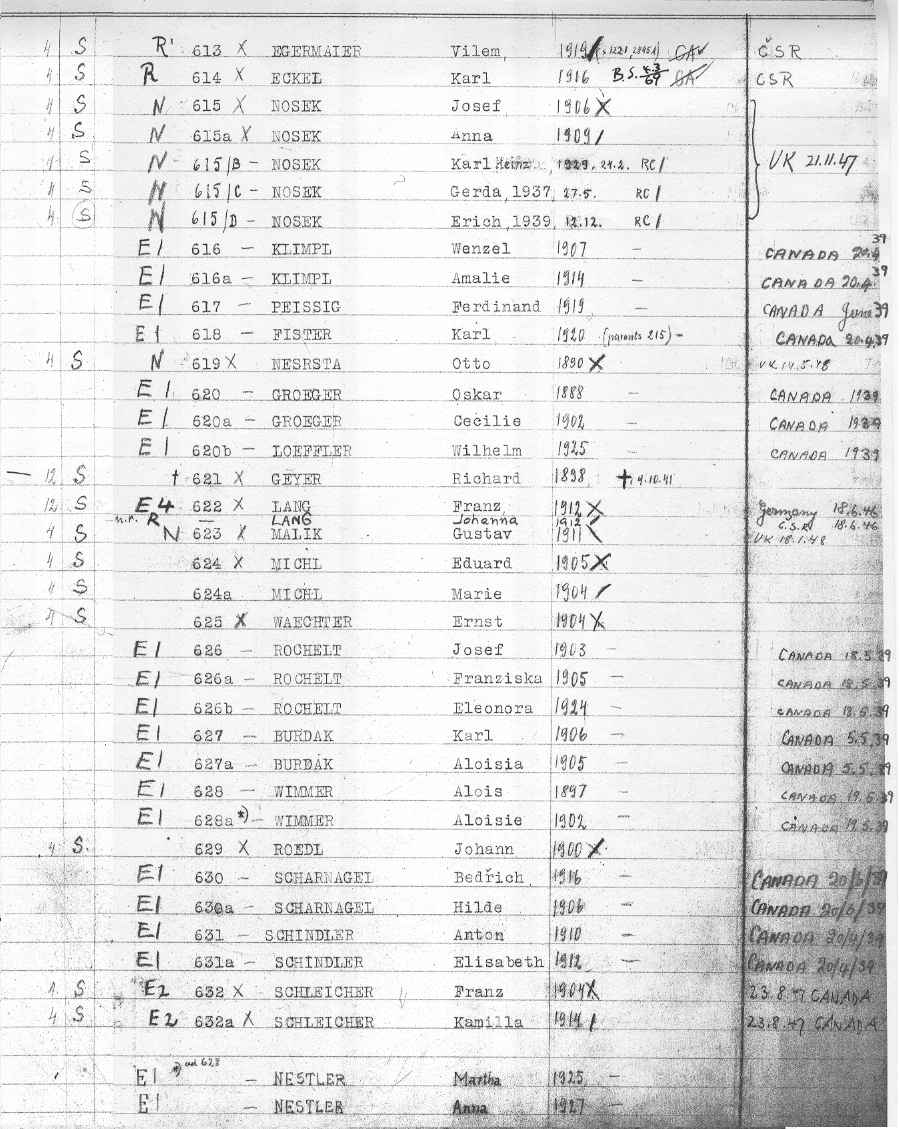 4 S R' 613 X EGERMAIER Vilem 1919 ČSR
4 S R 614 X ECKEL Karl 1916 B.S. CSR
4 S N 615 X NOSEK Josef 1906 X
4 S N 615a X NOSEK Anna 1909 /
4 S N 615/B - NOSEK Karl Heinz 1929. 24.2. RC/ VK 21.11.47
4 S N 615/C - NOSEK Gerda, 1937, 27.5. RC/
4 S N 615/D - NOSEK Erich, 1939, 12.12. RC/
E1 616 - KLIMPL Wenzel 1907 - CANADA 20.4 39
E1 616a - KLIMPL Amalie 1914 - CANADA 20.4. 39
E1 617 - PEISSIG Ferdinand 1919 - CANADA June 39
E1 618 - FISTER Karl 1920 (parents 215) - CANADA 20.4.39
4 S N 619 X NESRSTA Otto 1890 X VK 14.5.48
E1 620 - GROEGER Oskar 1888 - CANADA 1939
E1 620a - GROEGER Cecilie 1902 - CANADA 1939
E1 620b - LOEFFLER Wilhelm 1925 - CANADA 1939
— 12 S † 621 X GEYER Richard 1898 † 4.10.41
12 S E4 622 X LANG Franz 1912 X Germany 18.6.46
n.r. R — LANG Johanna 1912 / C.S.R 18.6.46
4 S N 623 X MALIK Gustav 1911 VK 18.1.48
4 S 624 X MICHL Eduard 1905 X
4 S 624a MICHL Marie 1904 /
4 S 625 X WAECHTER Ernst 1904 X
E1 626 - ROCHELT Josef 1903 - CANADA 18.5.39
E1 626a - ROCHELT Franziska 1905 - CANADA 18.5.39
E1 626b - ROCHELT Eleonora 1924 - CANADA 18.5.39
E1 627 - BURDAK Karl 1906 - CANADA 5.5.39
E1 627a - BURDAK Aloisia 1905 - CANADA 5.5.39
E1 628 - WIMMER Alois 1897 - CANADA 19.5.39
E1 628a*) - WIMMER Aloisie 1902 - CANADA 19.5.39
4 S. 629 X ROEDL Johann 1900 X
E1 630 - SCHARNAGEL Bedřich 1916 - CANADA 20/6/39
E1 630a - SCHARNAGEL Hilde 1906 - CANADA 20/6/39
E1 631 - SCHINDLER Anton 1910 - CANADA 20/4/39
E1 631a - SCHINDLER Elisabeth 1912 - CANADA 20/4/39
4 S E2 632 X SCHLEICHER Franz 1904 X 23.8.47 CANADA
4 S E2 632a X SCHLEICHER Kamilla 1914 / 23.8.47 CANADA
*) ad 628
E1 - NESTLER Martha 1925 -
E1 - NESTLER Anna 1927 -